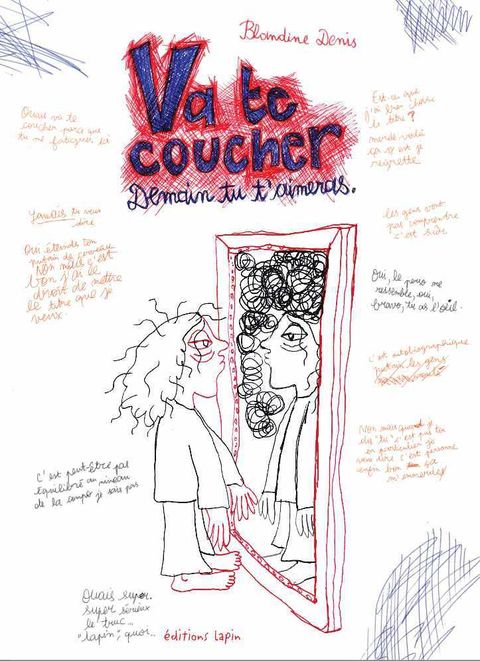 Blandine Denis
Va te
coucher
Demain tu t'aimeras.
Ouais va te
coucher parce que
tu me fatigues ici
Est-ce que
j'ai bien choisi
le titre ?
merde voilà
ça y est je
regrette
Jamais tu veux
dire
Oui éteinds ton
de cerveau
Non mais c'est
bon j'ai le
droit de mettre
le titre que je
veux.
les gens vont
pas comprendre
c'est sûr
Oui, le perso me
ressemble, oui,
bravo, tu as l'œil.
c'est autobiographique
les gens
Non mais quand je
dis "tu" c'est pas toi
en particulier je
veux dire c'est personne
enfin bon ça
m'énerve
C'est peut-être pas
équilibré au niveau
de la compo je sais pas
Ouais super.
super sérieux
le truc...
"lapin", quoi...
éditions lapin